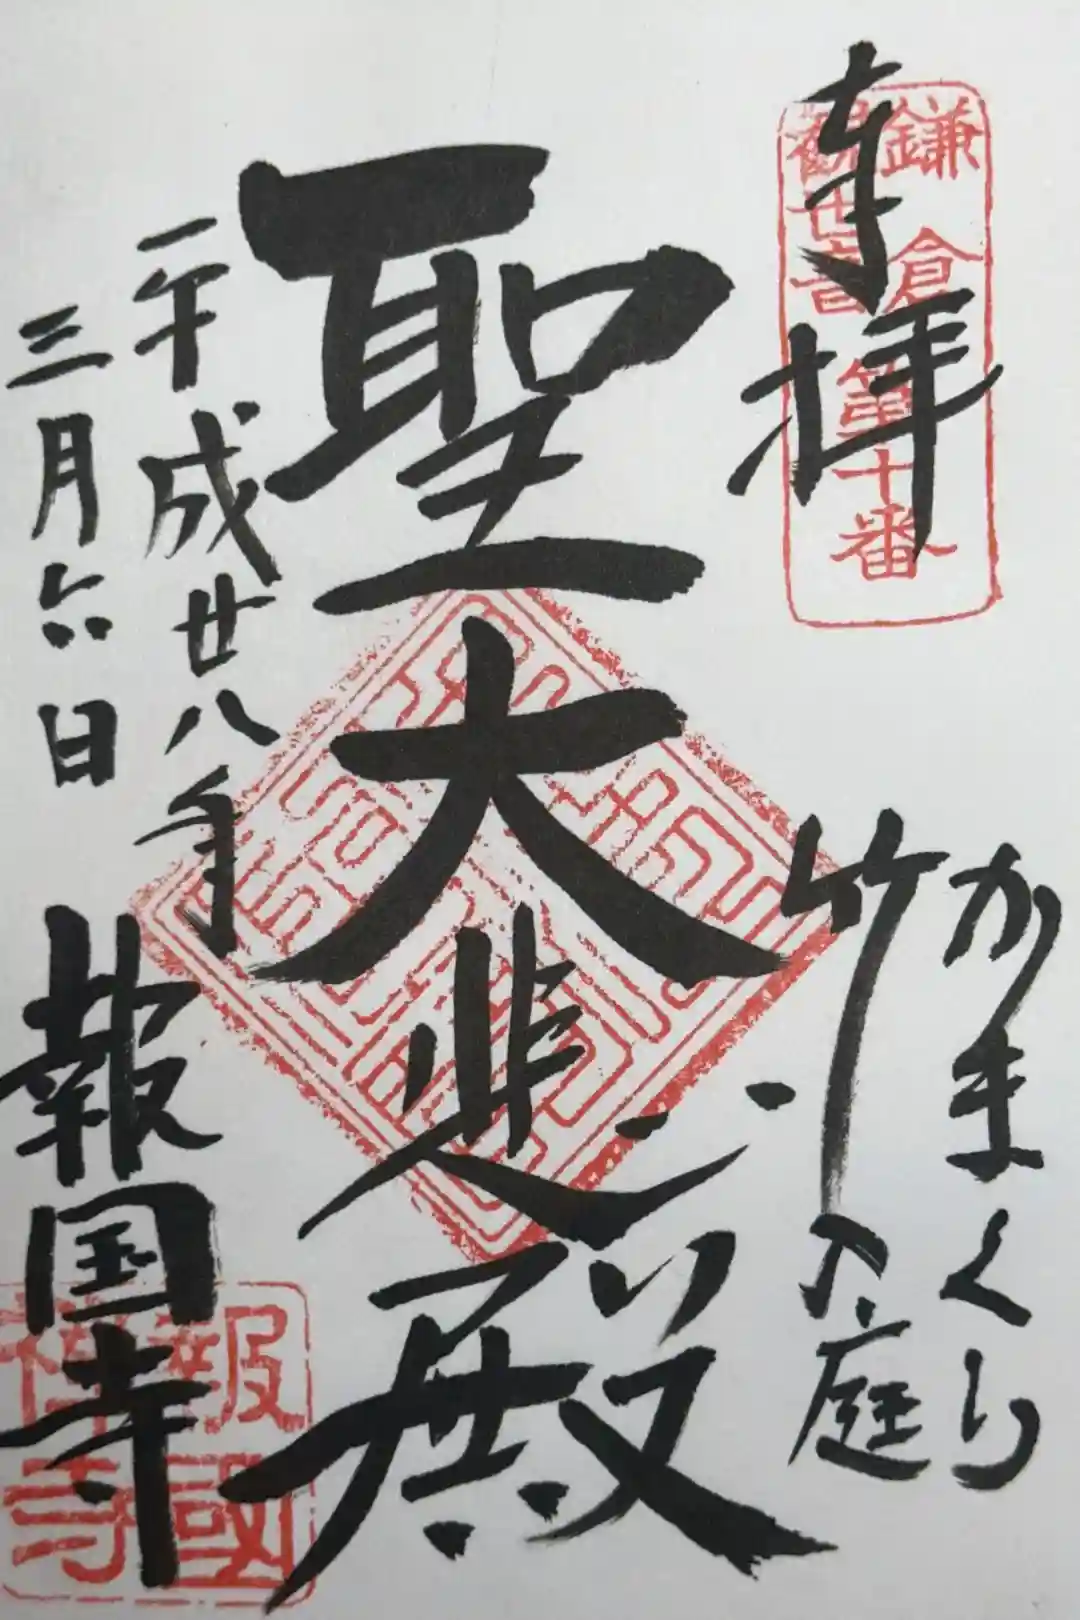 奉拝
鎌倉
觀世音
第十番
かまくら
竹の庭
聖大悲殿
平成廿八年
三月六日
報国寺
報國
禅寺